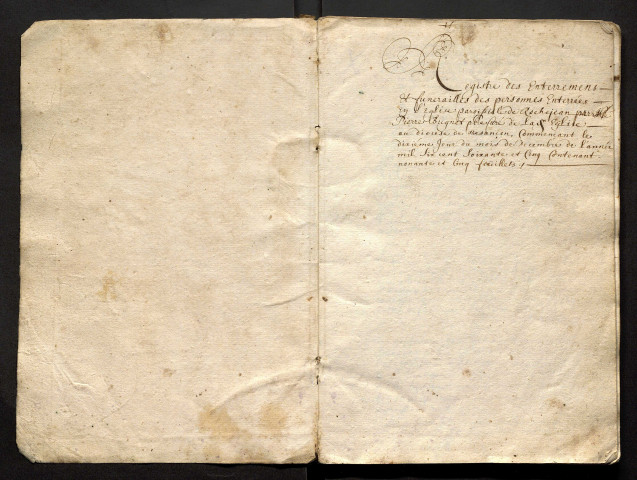 Registre des Enterremens
et funerailles des personnes Enterrées
En l'eglise parossialle de Rochejean par
Pierre prestre de lad. Eglise
au diocese de Besançon, Commençant le
dixieme Jour du mois de decembre de l'année
mil six cent soixante et Cinq Contenant
nonante et Cinq feuillets